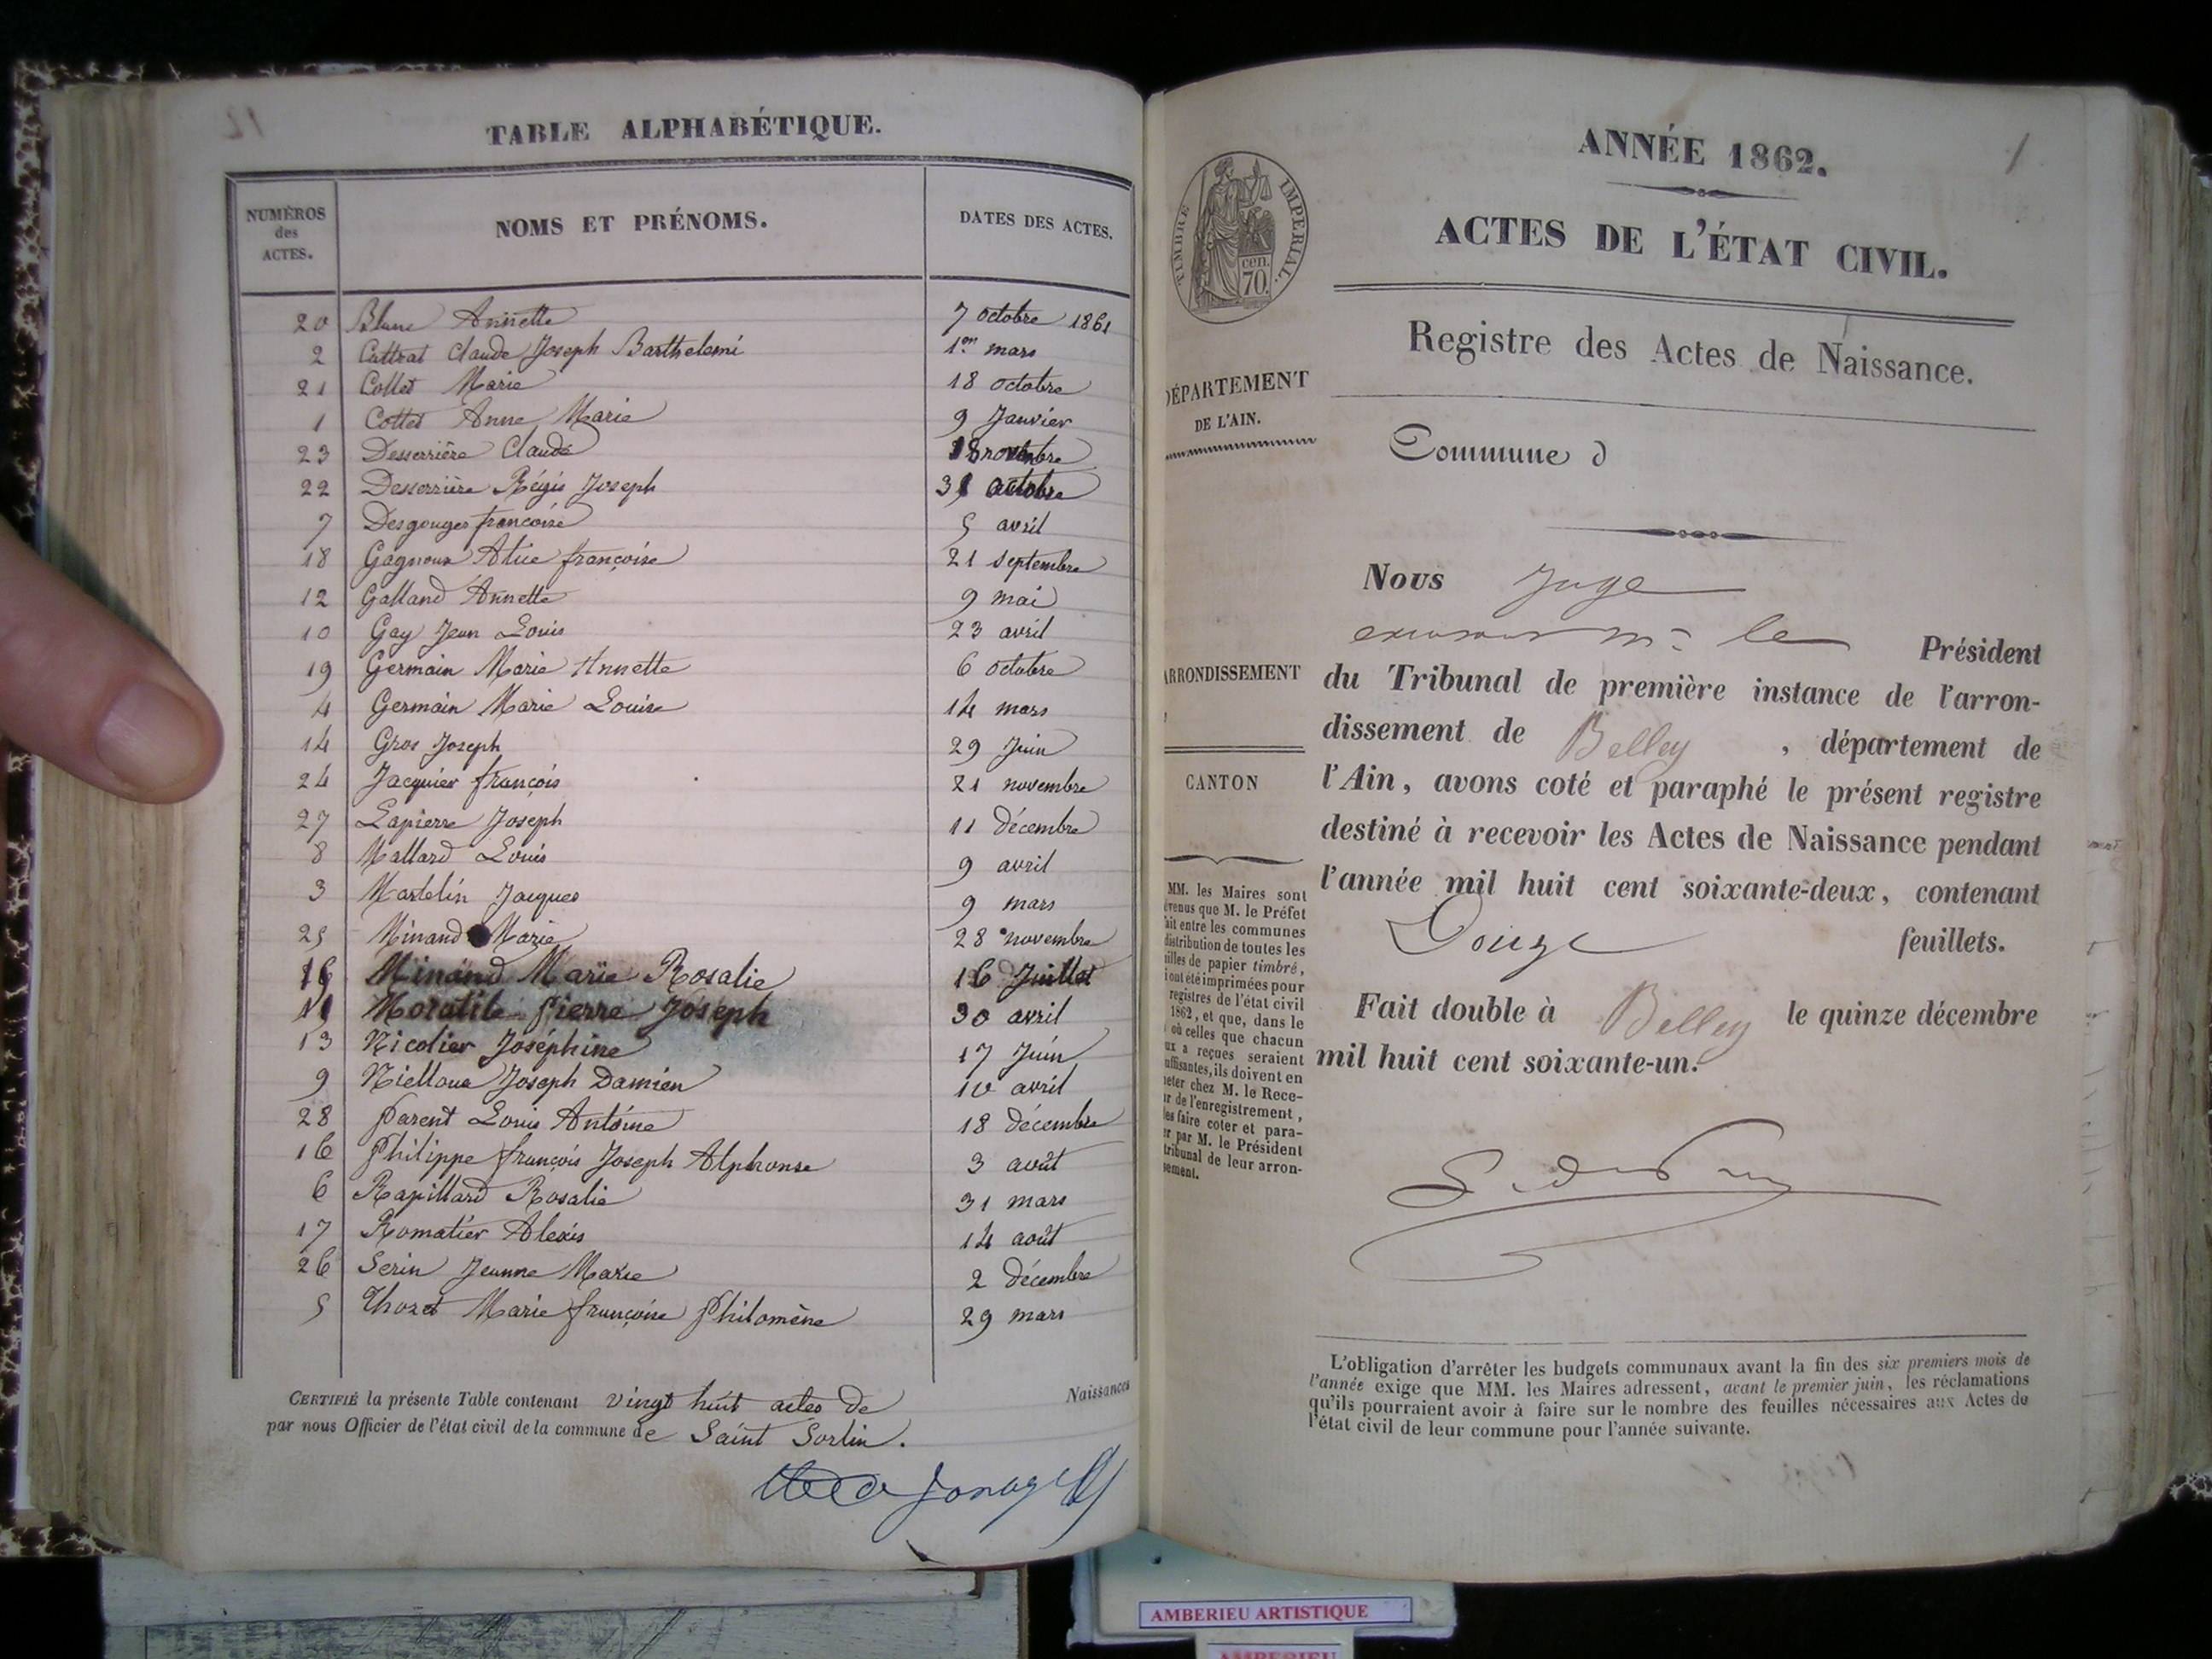 12
TABLE ALPHABÉTIQUE.
NUMÉROS des ACTES.
NOMS ET PRÉNOMS.
DATES DES ACTES.
20 Blanc Annette 7 octobre 1861
2 Cattrat Claude Joseph Barthelemi 1er mars
21 Collet Marie 18 octobre
1 Cottet Anne Marie 9 Janvier
23 Desserrière Claude 18 novembre
22 Desserrière Régis Joseph 31 octobre
7 Desgouges françoise 5 avril
18 Gagneux Alice françoise 21 septembre
12 Galland Annette 9 mai
10 Gay Jean Louis 23 avril
19 Germain Marie Annette 6 octobre
4 Germain Marie Louise 14 mars
14 Gros Joseph 29 Juin
24 Jacquier françois 21 novembre
27 Lapierre Joseph 11 décembre
8 Mallard Louis 9 avril
3 Martelin Jacques 9 mars
25 Minand Marie 28 novembre
15 Minand Marie Rosalie 16 Juillet
11 Pierre Joseph 30 avril
13 Nicolier Joséphine 17 Juin
9 Nielloux Joseph Damien 10 avril
28 Parent Louis Antoine 18 décembre
16 Philippe françois Joseph Alphonse 3 août
6 Rapillard Rosalie 31 mars
17 Romatier Alexis 14 août
26 Serin Jeanne Marie 2 décembre
5 Thozet Marie françoise Philomène 29 mars
CERTIFIÉ la présente Table contenant vingt huit actes de Naissances
par nous Officier de l'état civil de la commune de Saint Sorlin.
1
ANNÉE 1862.
ACTES DE L'ÉTAT CIVIL.
TIMBRE IMPÉRIAL.
cen. 70.
Registre des Actes de Naissance.
DÉPARTEMENT
DE L'AIN.
Commune d
Nous Juge
m. le Président
ARRONDISSEMENT
du Tribunal de première instance de l'arron-
dissement de Belley, département de
CANTON
l'Ain, avons coté et paraphé le présent registre
destiné à recevoir les Actes de Naissance pendant
l'année mil huit cent soixante-deux, contenant
Douze feuillets.
Fait double à Belley le quinze décembre
mil huit cent soixante-un.
MM. les Maires sont
venus que M. le Préfet
ait entre les communes
distribution de toutes les
uilles de papier timbré,
i ont été imprimées pour
registres de l'état civil
1862, et que, dans le
où celles que chacun
ux a reçues seraient
uffisantes, ils doivent en
heter chez M. le Rece-
ur de l'enregistrement,
les faire coter et para-
er par M. le Président
tribunal de leur arron-
sement.
L'obligation d'arrêter les budgets communaux avant la fin des six premiers mois de
l'année exige que MM. les Maires adressent, avant le premier juin, les réclamations
qu'ils pourraient avoir à faire sur le nombre des feuilles nécessaires aux Actes de
l'état civil de leur commune pour l'année suivante.
AMBERIEU ARTISTIQUE
AMBERIEU